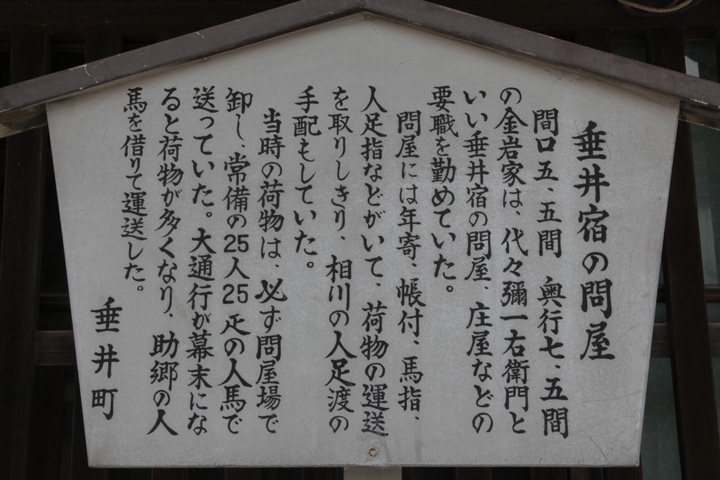 垂井宿の問屋
間口五、五間　奥行七、五間
の金岩家は、代々彌一右衛門と
いい垂井宿の問屋、庄屋などの
要職を勤めていた。
問屋には年寄、帳付、馬指、
人足指などがいて、荷物の運送
を取りしきり、相川の人足渡の
手配もしていた。
当時の荷物は、必ず問屋場で
卸し、常備の25人25疋の人馬で
送っていた。大通行が幕末にな
ると荷物が多くなり、助郷の人
馬を借りて運送した。
垂井町